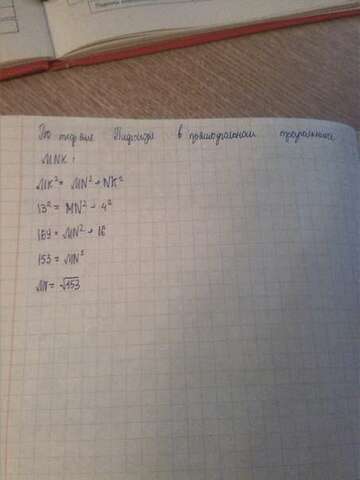 По теореме Пифагора в прямоугольном треугольнике
MNK:
MK² = MN² + NK²
13² = MN² + 4²
169 = MN² + 16
153 = MN²
MN = √153